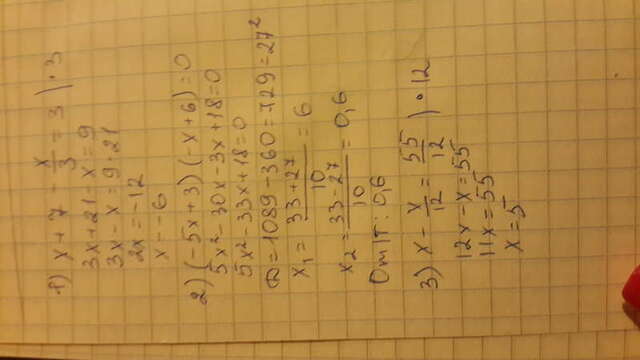 1) x + 7 - x/3 = 3 ) · 3
3x + 21 - x = 9
3x - x = 9 · 21
2x = -12
x = -6
2) (-5x + 3) (-x + 6) = 0
5x² - 30x - 3x + 18 = 0
5x² - 33x + 18 = 0
D = 1089 - 360 = 729 = 27²
x₁ = (33 + 27)/10 = 6
x₂ = (33 - 27)/10 = 0,6
3) x - x/12 = 55/12 ) · 12
12x - x = 55
11x = 55
x = 5